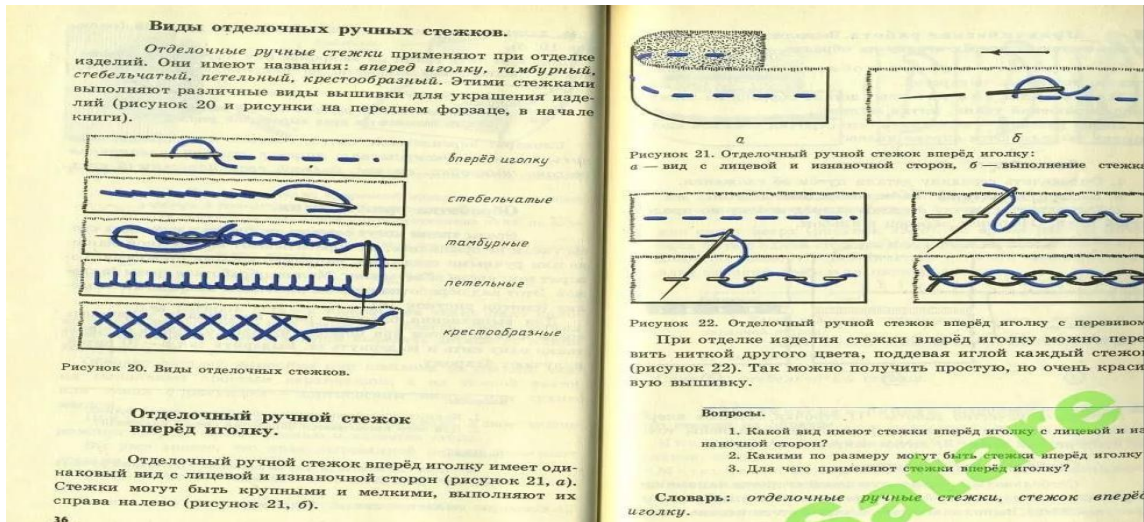 Виды отделочных ручных стежков.
Отделочные ручные стежки применяют при отделке
изделий. Они имеют названия: вперед иголку, тамбурный,
стебельчатый, петельный, крестообразный. Этими стежками
выполняют различные виды вышивки для украшения изде-
лий (рисунок 20 и рисунки на переднем форзаце, в начале
книги).
вперёд иголку
стебельчатые
тамбурные
петельные
крестообразные
Рисунок 20. Виды отделочных стежков.
Отделочный ручной стежок
вперёд иголку.
Отделочный ручной стежок вперёд иголку имеет оди-
наковый вид с лицевой и изнаночной сторон (рисунок 21, а).
Стежки могут быть крупными и мелкими, выполняют их
справа налево (рисунок 21, б).
36
а
б
Рисунок 21. Отделочный ручной стежок вперёд иголку:
а — вид с лицевой и изнаночной сторон, б — выполнение стежк
Рисунок 22. Отделочный ручной стежок вперёд иголку с перевивко
При отделке изделия стежки вперёд иголку можно пере
вить ниткой другого цвета, поддевая иглой каждый стежо
(рисунок 22). Так можно получить простую, но очень краси
вую вышивку.
Вопросы.
1. Какой вид имеют стежки вперёд иголку с лицевой и из
наночной сторон?
2. Какими по размеру могут быть стежки вперёд иголку
3. Для чего применяют стежки вперёд иголку?
Словарь: отделочные ручные стежки, стежок вперёд
иголку.